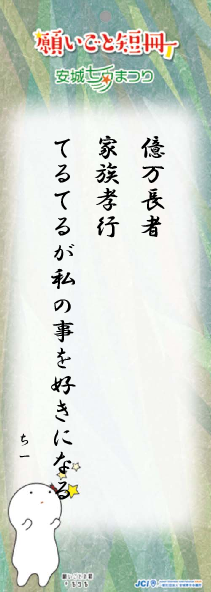 願いごと短冊
安城七夕まつり
億万長者
家族孝行
てるてるが私の事を好きになる
ちー
JCI